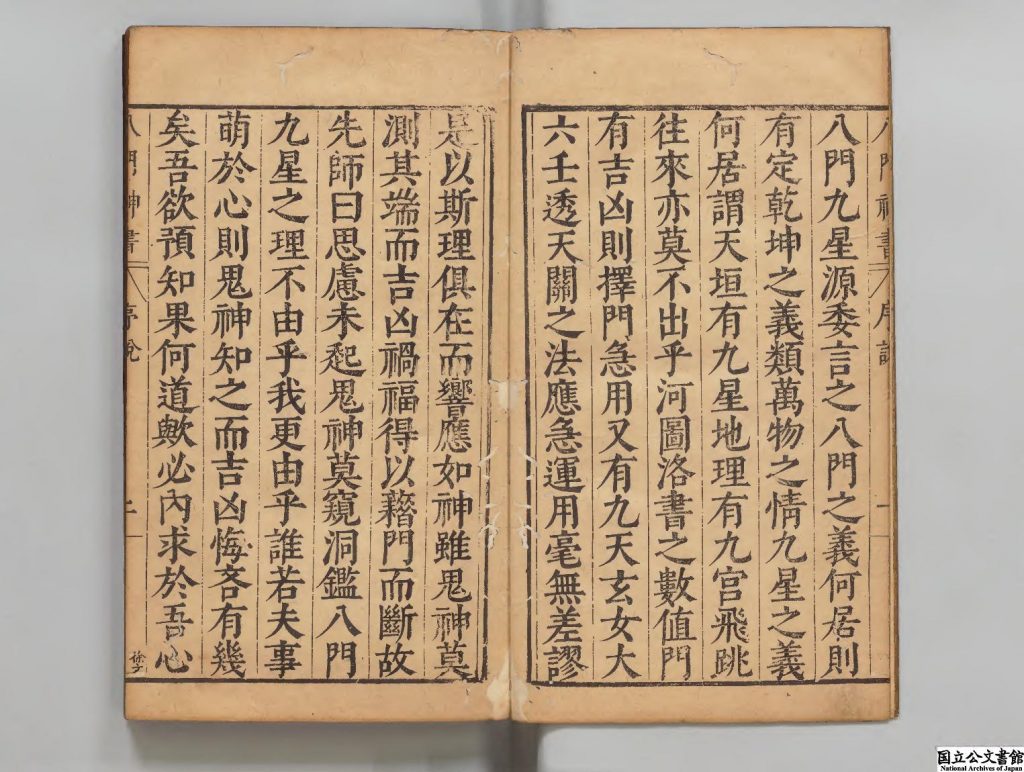 八門神書 序說 一
八門九星源委言之八門之義何居則
有定乾坤之義類萬物之情九星之義
何居謂天垣有九星地理有九宮飛跳
往來亦莫不出乎河圖洛書之數值門
有吉凶則擇門急用又有九天玄女大
六壬透天關之法應急運用毫無差謬
是以斯理俱在而響應如神雖鬼神莫
測其端而吉凶禍福得以藉門而斷故
先師曰思慮未起鬼神莫窺洞鑑八門
九星之理不由乎我更由乎誰若夫事
萌於心則鬼神知之而吉凶悔吝有幾
矣吾欲預知果何道歟必內求於吾心
八門神書 序說 二
国立公文書館
National Archives of Japan